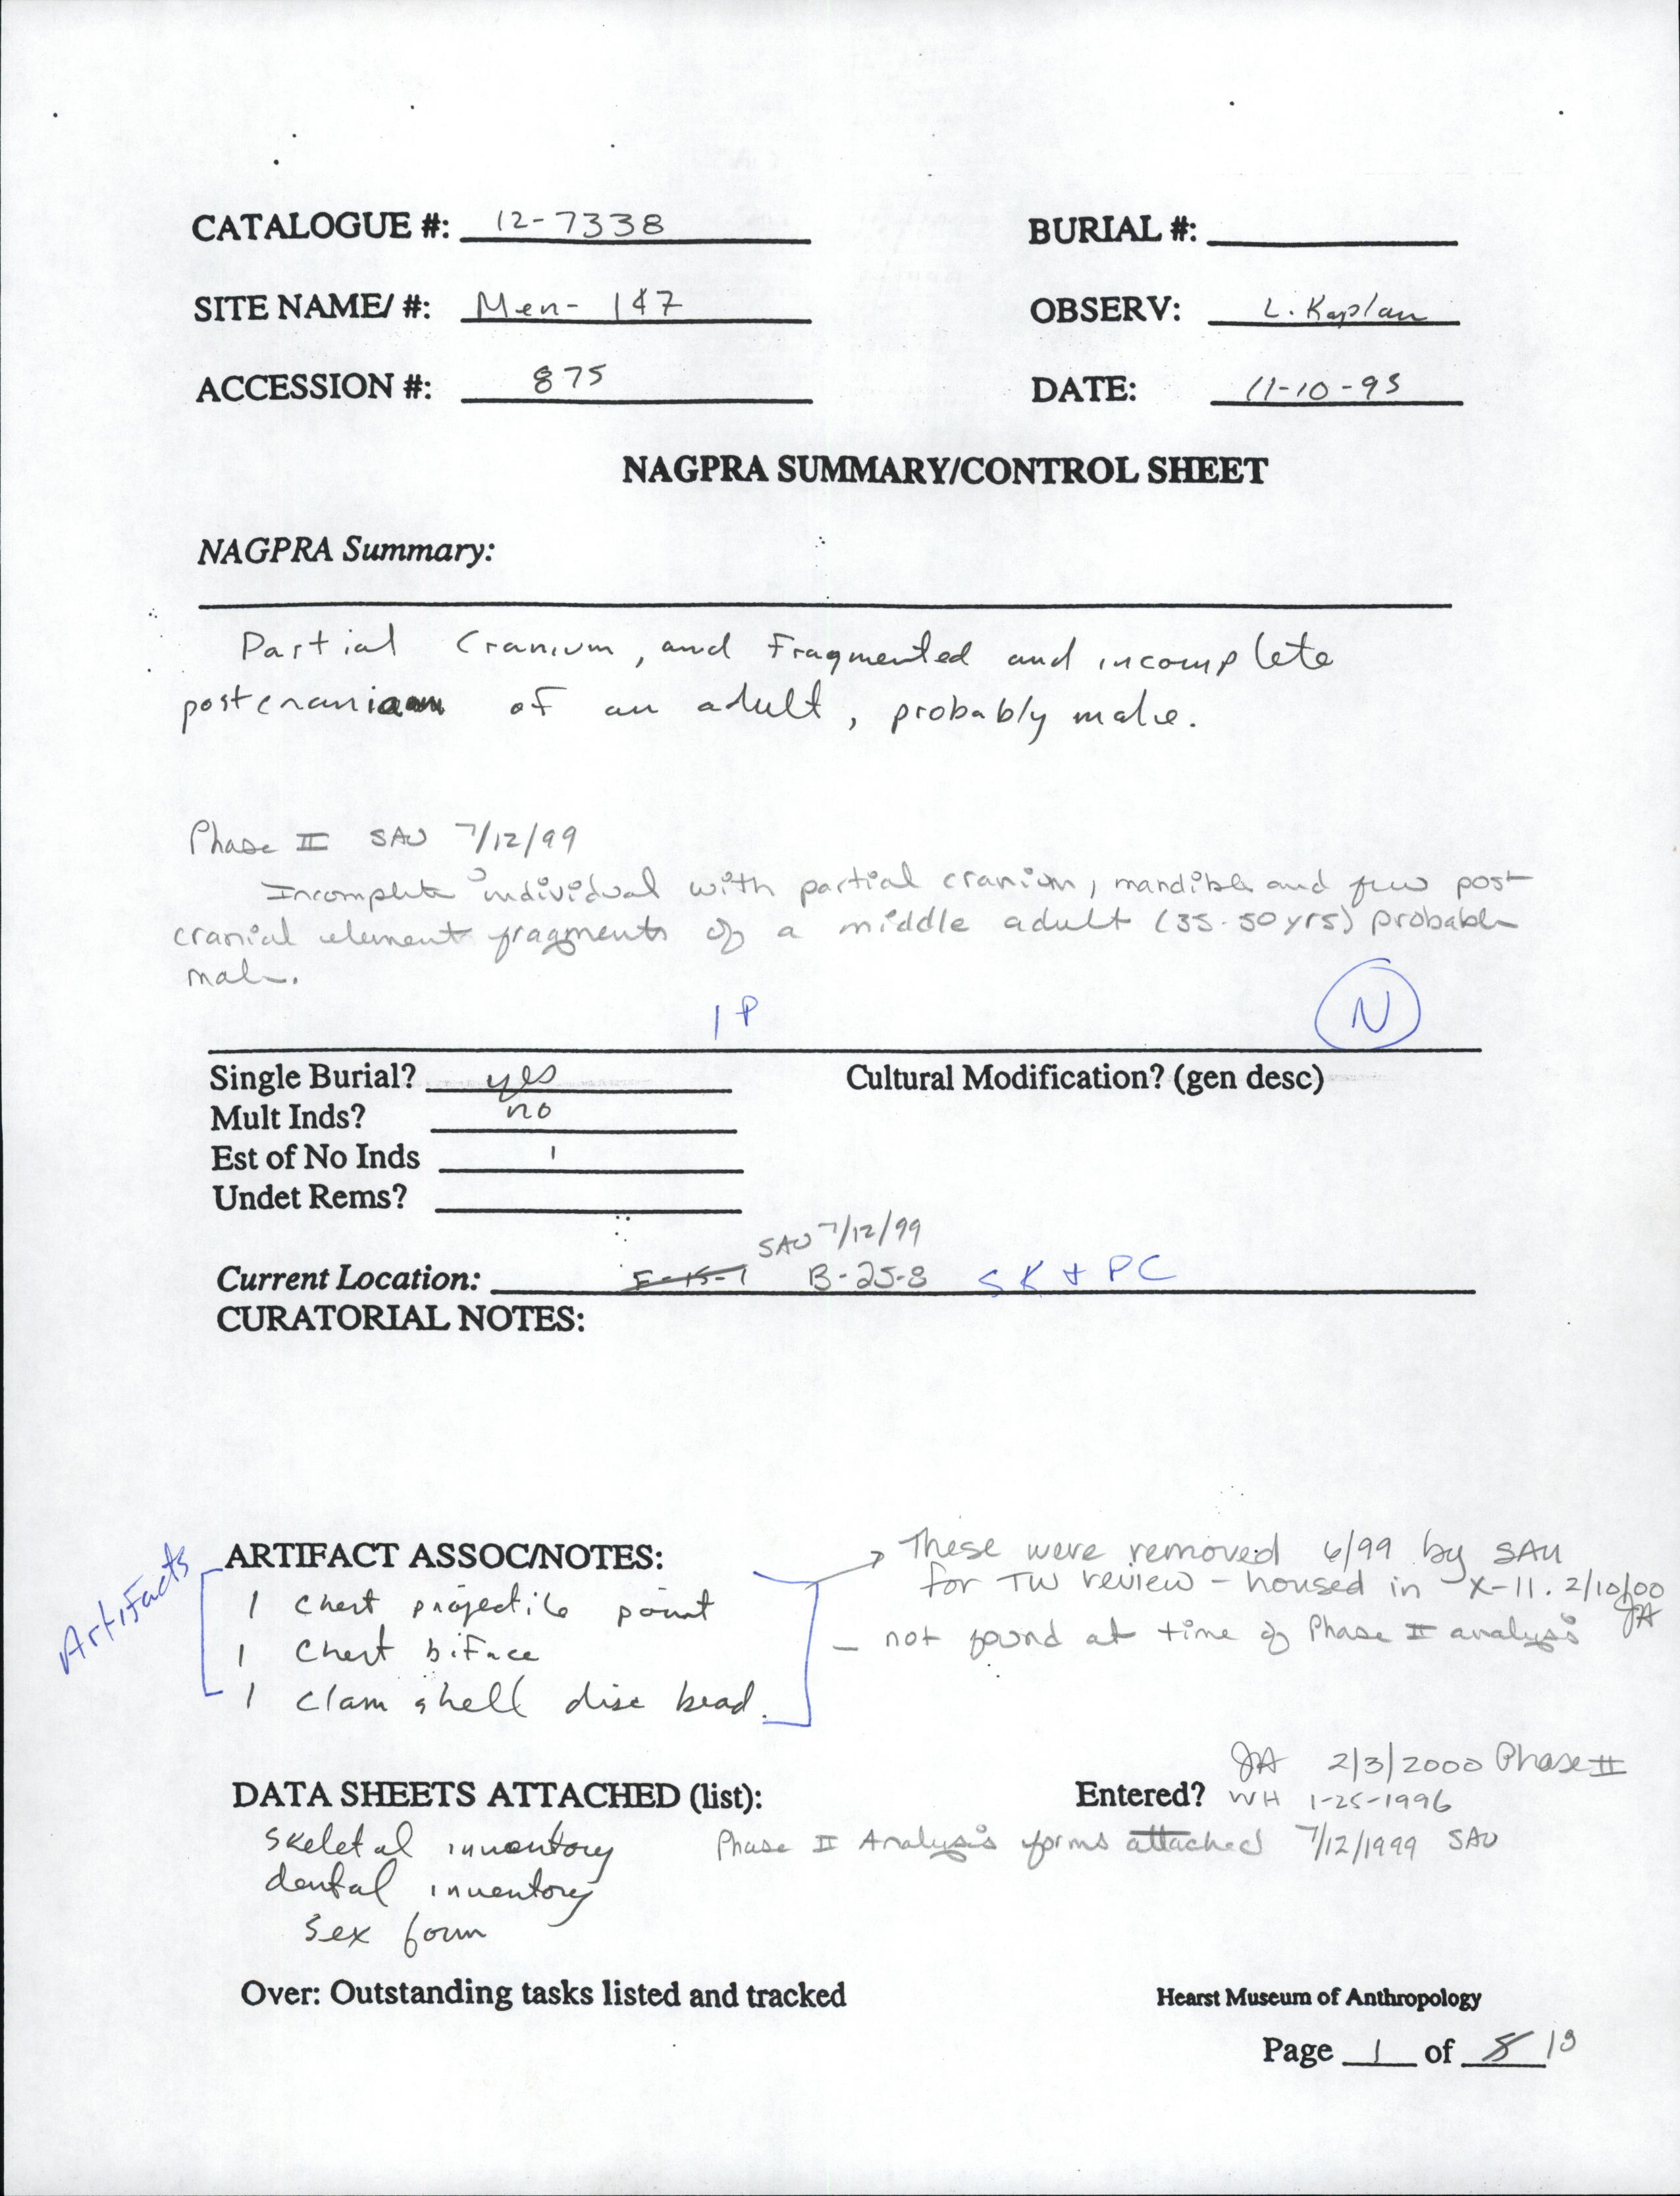 CATALOGUE #: 12-7338 BURIAL #:
SITE NAME/ #: Men- 147 OBSERV: L. Kaplan
ACCESSION #: 875 DATE: 11-10-95
NAGPRA SUMMARY/CONTROL SHEET
NAGPRA Summary:
Partial Cranium, and Fragmented and incomplete
postcranium of an adult, probably male.
Phase II SAU 7/12/99
Incomplete individual with partial cranium, mandible and few post
cranial element fragments of a middle adult (35-50yrs) probable
male.
1 P N
Single Burial? yes Cultural Modification? (gen desc)
Mult Inds? no
Est of No Inds 1
Undet Rems?
SAU 7/12/99
Current Location: B-25-8 SK + PC
CURATORIAL NOTES:
Artifacts
ARTIFACT ASSOC/NOTES: → These were removed 6/99 by SAU
1 chert projectile point for TW review - housed in X-11. 2/10/00 JA
1 Chert biface - not found at time of Phase II analysis
1 clam shell disc bead.
JA 2/3/2000 Phase II
DATA SHEETS ATTACHED (list): Entered? WH 1-25-1996
skeletal inventory Phase II Analysis forms attached 7/12/1999 SAU
dental inventory
sex form
Over: Outstanding tasks listed and tracked Hearst Museum of Anthropology
Page 1 of 8